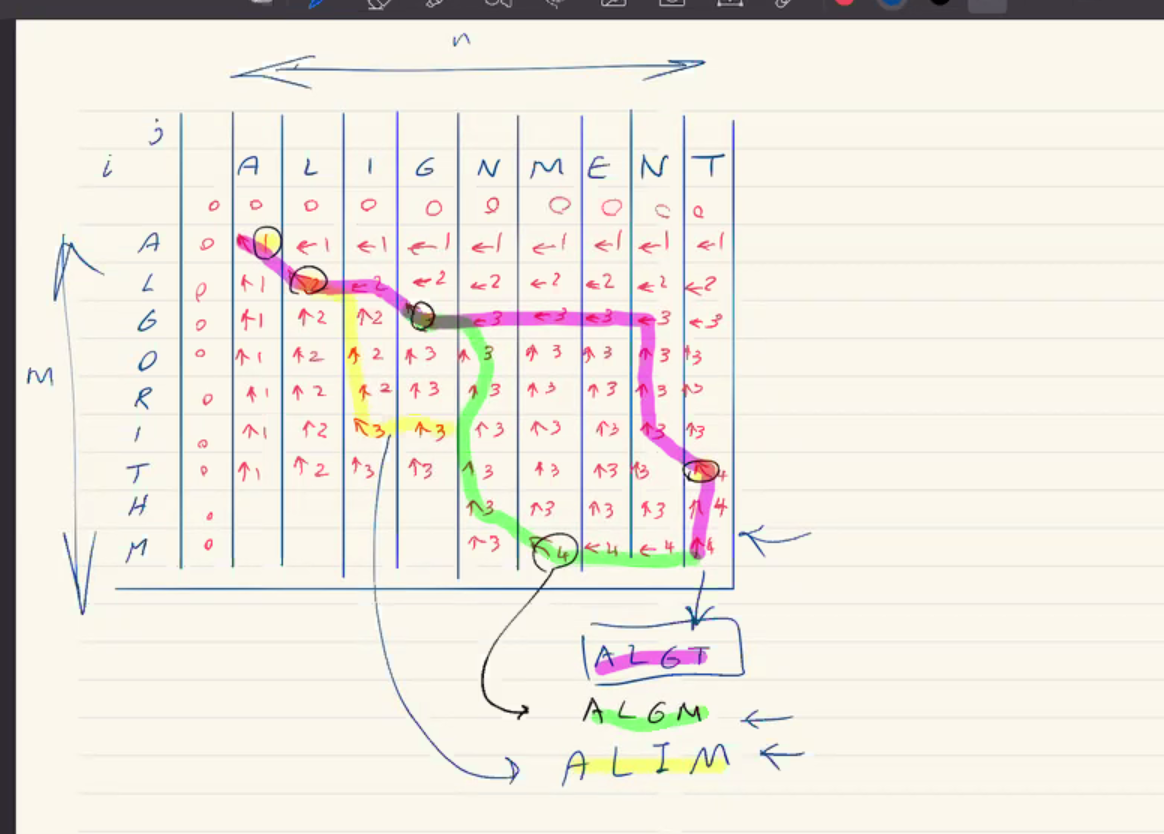 n
j
i A L I G N M E N T
0 0 0 0 0 0 0 0 0 0
A 0 1 ←1 ←1 ←1 ←1 ←1 ←1 ←1 ←1
L 0 ↑1 2 ←2 ←2 ←2 ←2 ←2 ←2 ←2
G 0 ↑1 ↑2 ↑2 ←3 ←3 ←3 ←3 ←3
m
O 0 ↑1 ↑2 ↑2 ↑3 ↑3 ↑3 ↑3 ↑3 ↑3
R 0 ↑1 ↑2 ↑2 ↑3 ↑3 ↑3 ↑3 ↑3 ↑3
I 0 ↑1 ↑2 ↖3 ↑3 ↑3 ↑3 ↑3 ↑3 ↑3
T 0 ↑1 ↑2 ↑3 ↑3 ↑3 ↑3 ↑3 ↑3 ↖4
H 0 ↑3 ↑3 ↑3 ↑3 ↑4
M 0 ↑3 ↖4 ←4 ←4 ↑4
ALGT
ALGM
ALIM